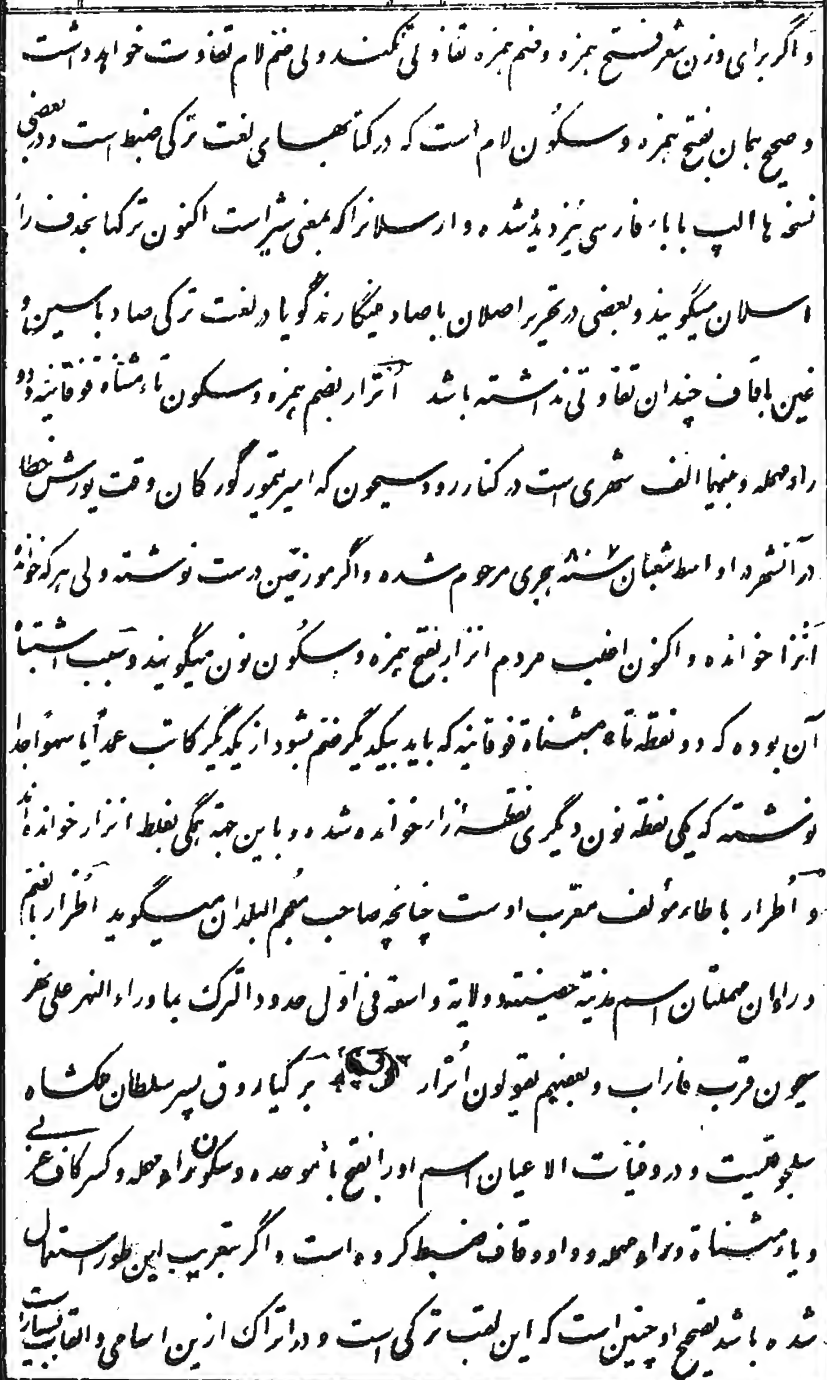 و اگر برای وزن شعر فتح همزه و ضم همزه تفاوتی نکند ولی ضم لام تفاوت خواهد داشت
و صحیح همان بفتح همزه و سکون لام است که در کتابهای لغت ترکی ضبط است و در بعضی
نسخه ها الپ با باء فارسی نیز دیده شده و ارسلانرا که بمعنی شیر است اکنون ترکها بحذف راء
اسلان میگویند و بعضی در تحریر اصلان با صاد مینگارند گویا در لغت ترکی صاد با سین و
غین با قاف چندان تفاوتی نداشته باشد اُترار بضم همزه و سکون تاء مثناة فوقانیه و دو
راء مهمله و بینهما الف شهری است در کنار رود سیحون که امیر تیمور گورکان وقت یورش خطا
در آنشهر در اواسط شعبان سنه ۸۰۷ هجری مرحوم شده و اگر مورخین درست نوشته ولی هر که خوانده
انزا خوانده و اکنون اغلب مردم انزار بفتح همزه و سکون نون میگویند و سبب اشتباه
آن بوده که دو نقطه تاء مثناة فوقانیه که باید بیکدیگر ضم بشود از یکدیگر کاتب عمداً یا سهواً جدا
نوشته که یکی نقطه نون و دیگری نقطه زاء خوانده شده و باین جهة همگی بغلط انزار خوانده‌اند
و اُطرار با طاء مؤلف معرب اوست چنانچه صاحب معجم البلدان میگوید اطرار بالضم
و راءان مهملتان اسم مدینة حصینة و ولایة واسعة فی اول حدود الترک بما وراء النهر علی نهر
سیحون قرب فاراب و بعضهم یقولون اُترار برکیاروق پسر سلطان ملکشاه
سلجوقیست و در وفیات الاعیان اسم او را بفتح باء موحده و سکون راء مهمله و کسر کاف عربی
و یاء مثناة و راء مهمله و واو و قاف ضبط کرده است و اگر بتعریب این طور استعمال
شده باشد تصحیح او چنین است که این لقب ترکی است و در اتراک ازین اسامی و القاب بسیار است